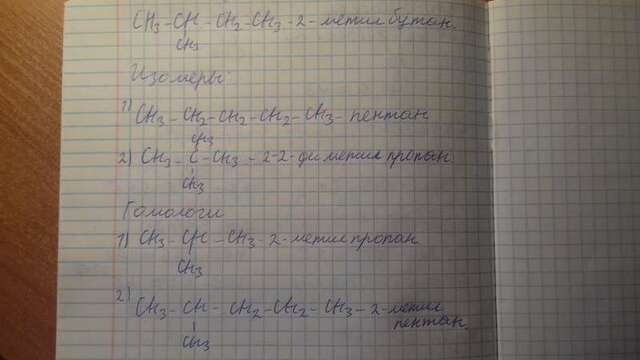 CH3-CH-CH2-CH3-2-метил бутан.
CH3
Изомеры:
1) CH3-CH2-CH2-CH2-CH3-пентан
CH3
2) CH3-C-CH3-2-2-ди метил пропан
CH3
Гомологи
1) CH3-CH-CH3-2-метил пропан
CH3
2) CH3-CH-CH2-CH2-CH3-2-метил
пентан
CH3